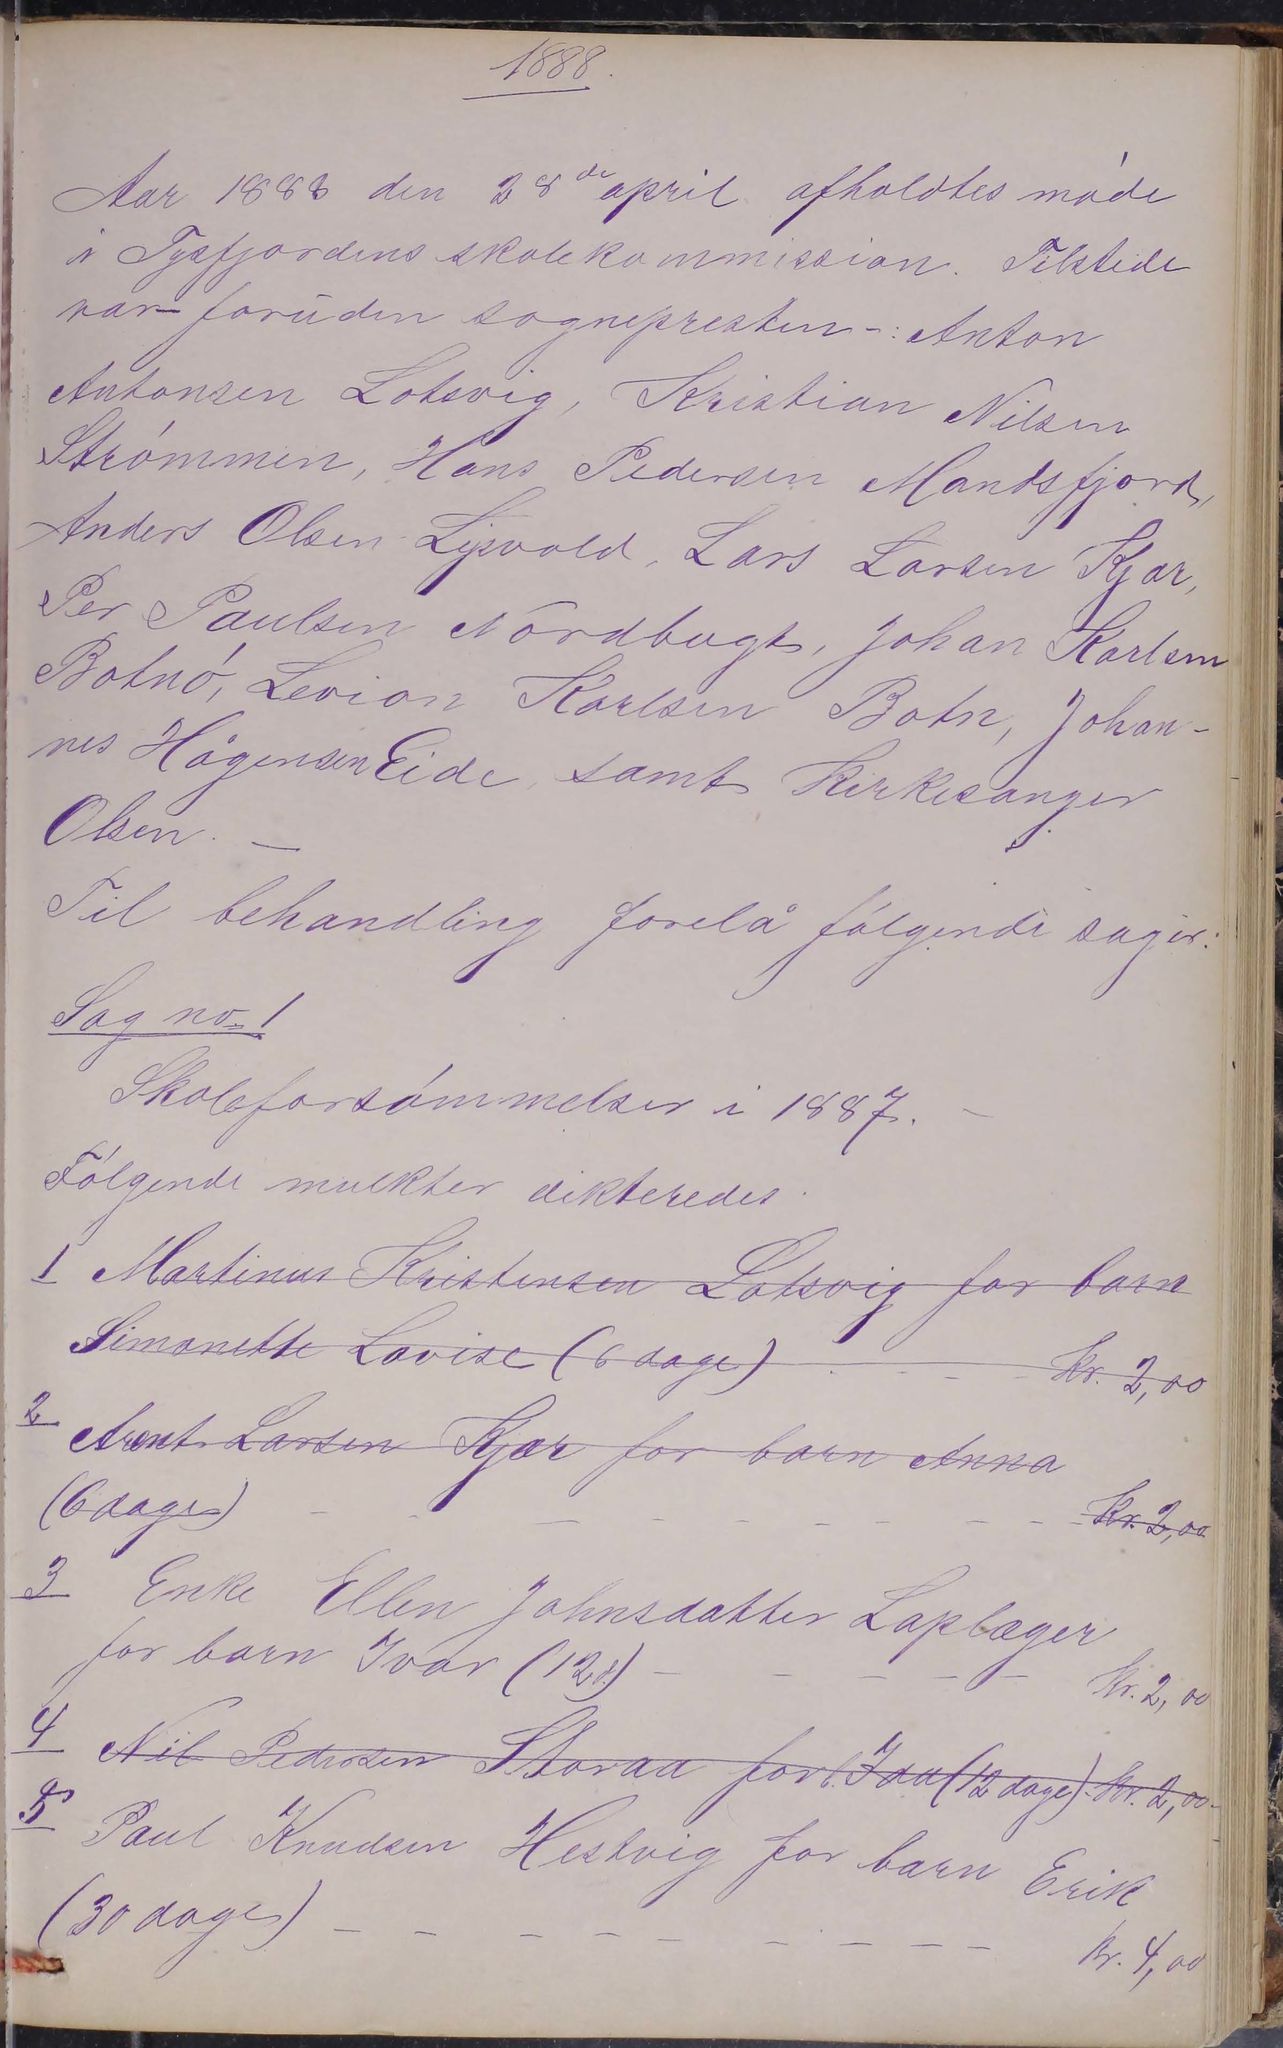 1888.
Aar 1888 den 28de april afholdtes móde
i Tysfjordens skolekommission. Tilstede
var foruden sognepresten -: Anton
Antonsen Lotsvig, Kristian Nilsen
Strómmen, Hans Pedersen Mandsfjord,
Anders Olsen Lysvold, Lars Larsen Kjær,
Per Paulsen Nordbugt, Johan Karlsen
Botnó, Levion Karlsen Botn, Johan-
nes Hågensen Eide, samt Kirkesanger
Olsen. —
Til behandling forelå fólgende sager:
Sag no. 1
Skoleforsómmelser i 1887. –
Fólgende mulkter dikteredes.
1 Martinus Kristensen Lotsvig for barn
Simonette Lovise (6 dage) . - - - kr. 2,00
2 Arent Larsen Kjær for barn Anna
(6 dage) - - - - - - - - - - kr. 2,00
3 Enke Ellen Johnsdatter Laplæger
for barn Ivar (12 d.) - - - - - kr. 2,00
4 Nil Pedersen Storaa for b. Ida (12 dage). kr. 2,00.
5 Paul Knudsen Hestvig for barn Erik
(30 dage) - - - - - - - - - kr. 4,00